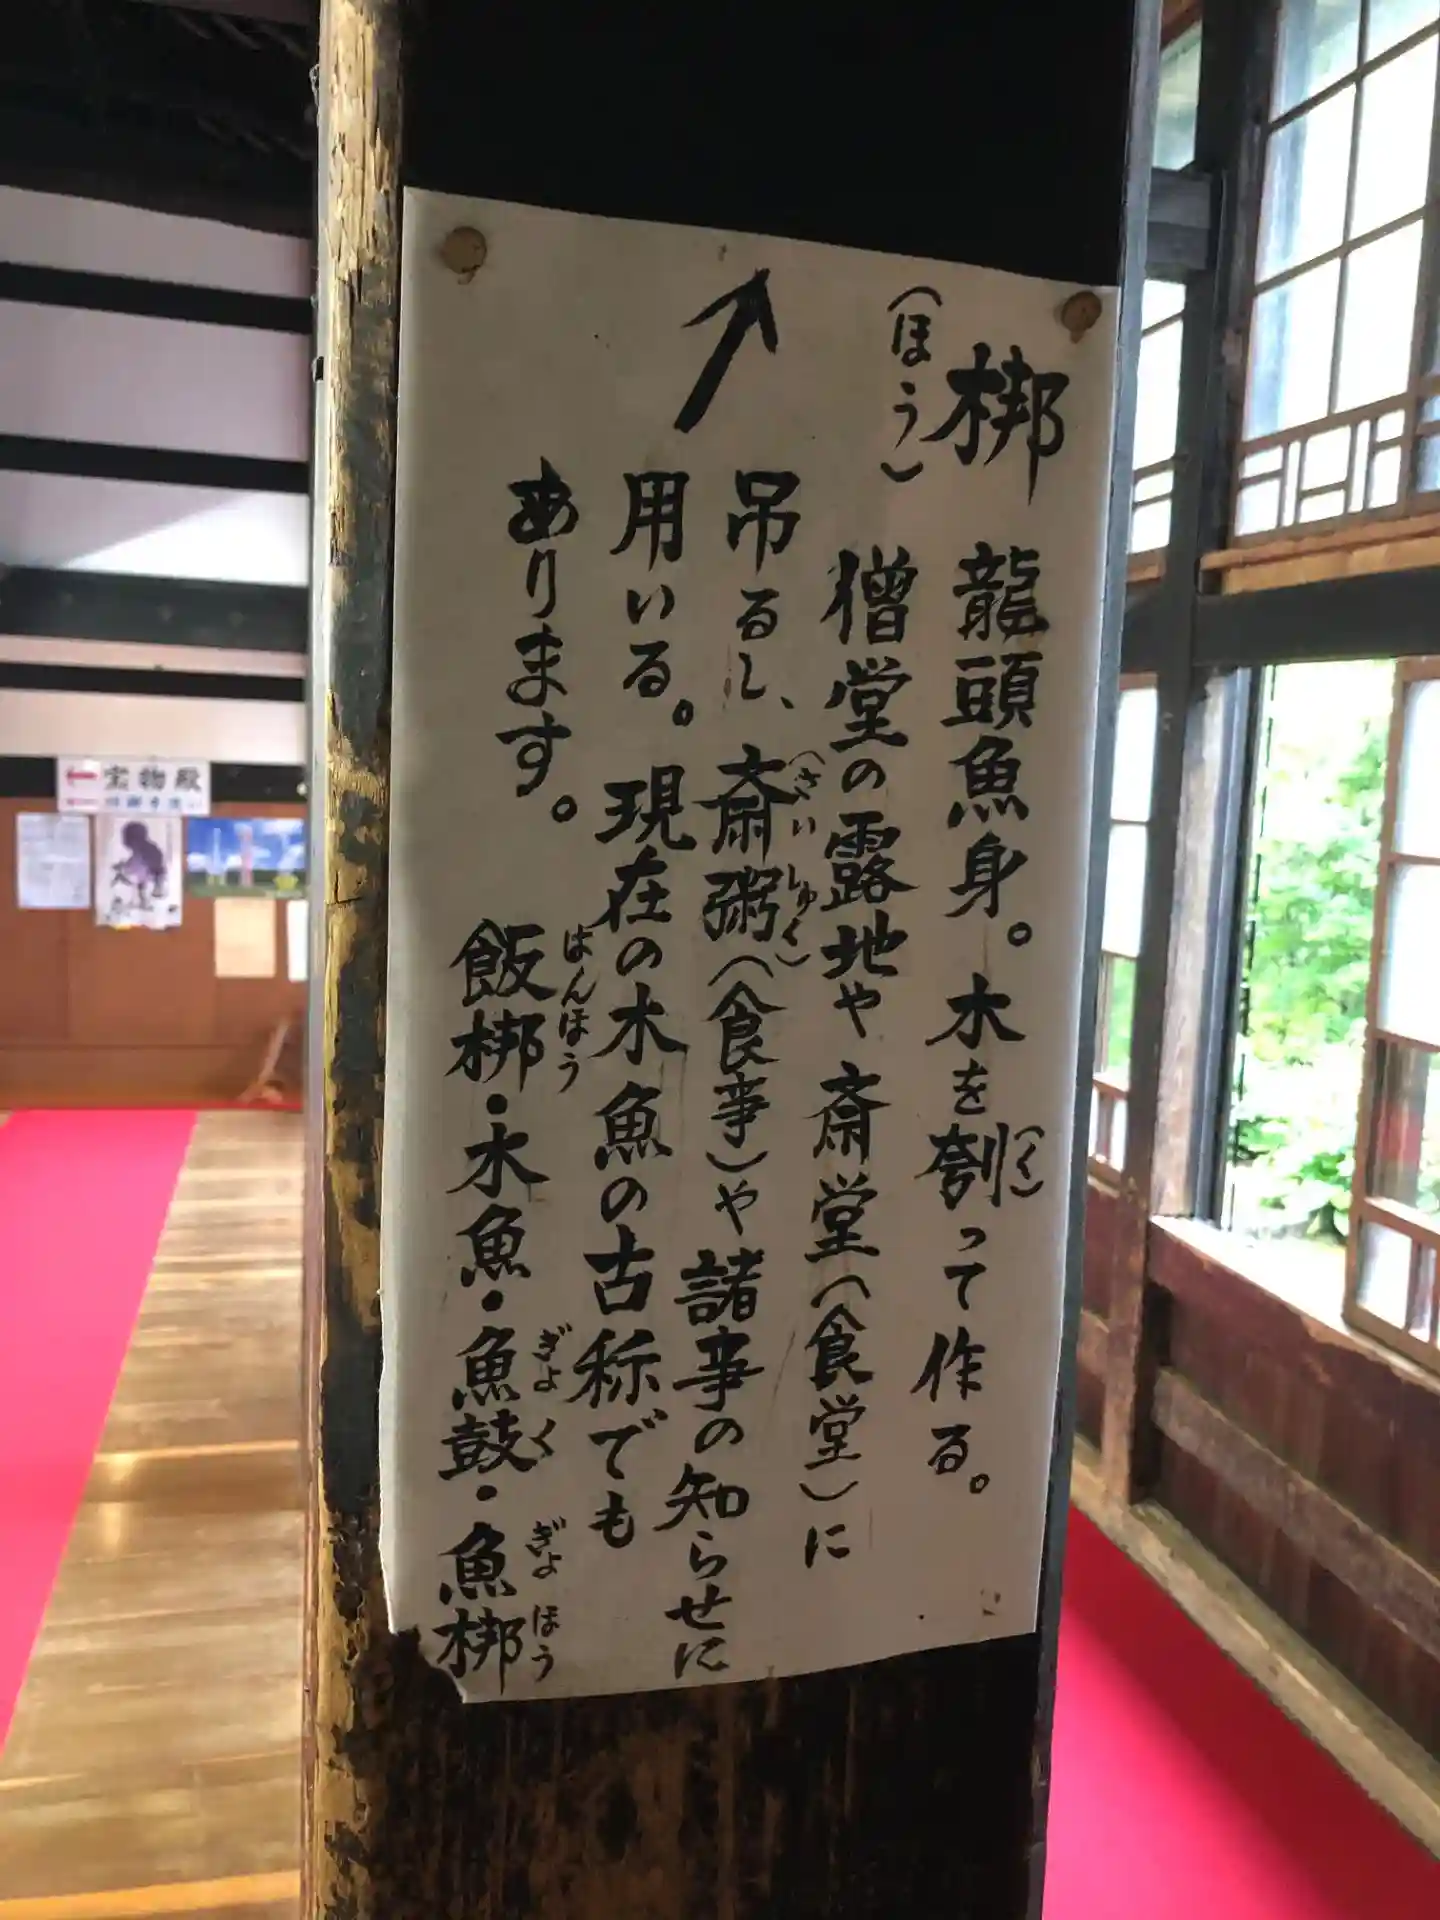 梆（ほう） 龍頭魚身。木を刳（く）って作る。
僧堂の露地や斎堂（食堂）に
吊るし、斎粥（さいしゅく）（食事）や諸事の知らせに
用いる。現在の木魚の古称でも
あります。
飯梆・木魚・魚鼓・魚梆
はんほう
ぎょく
ぎょほう
宝物殿